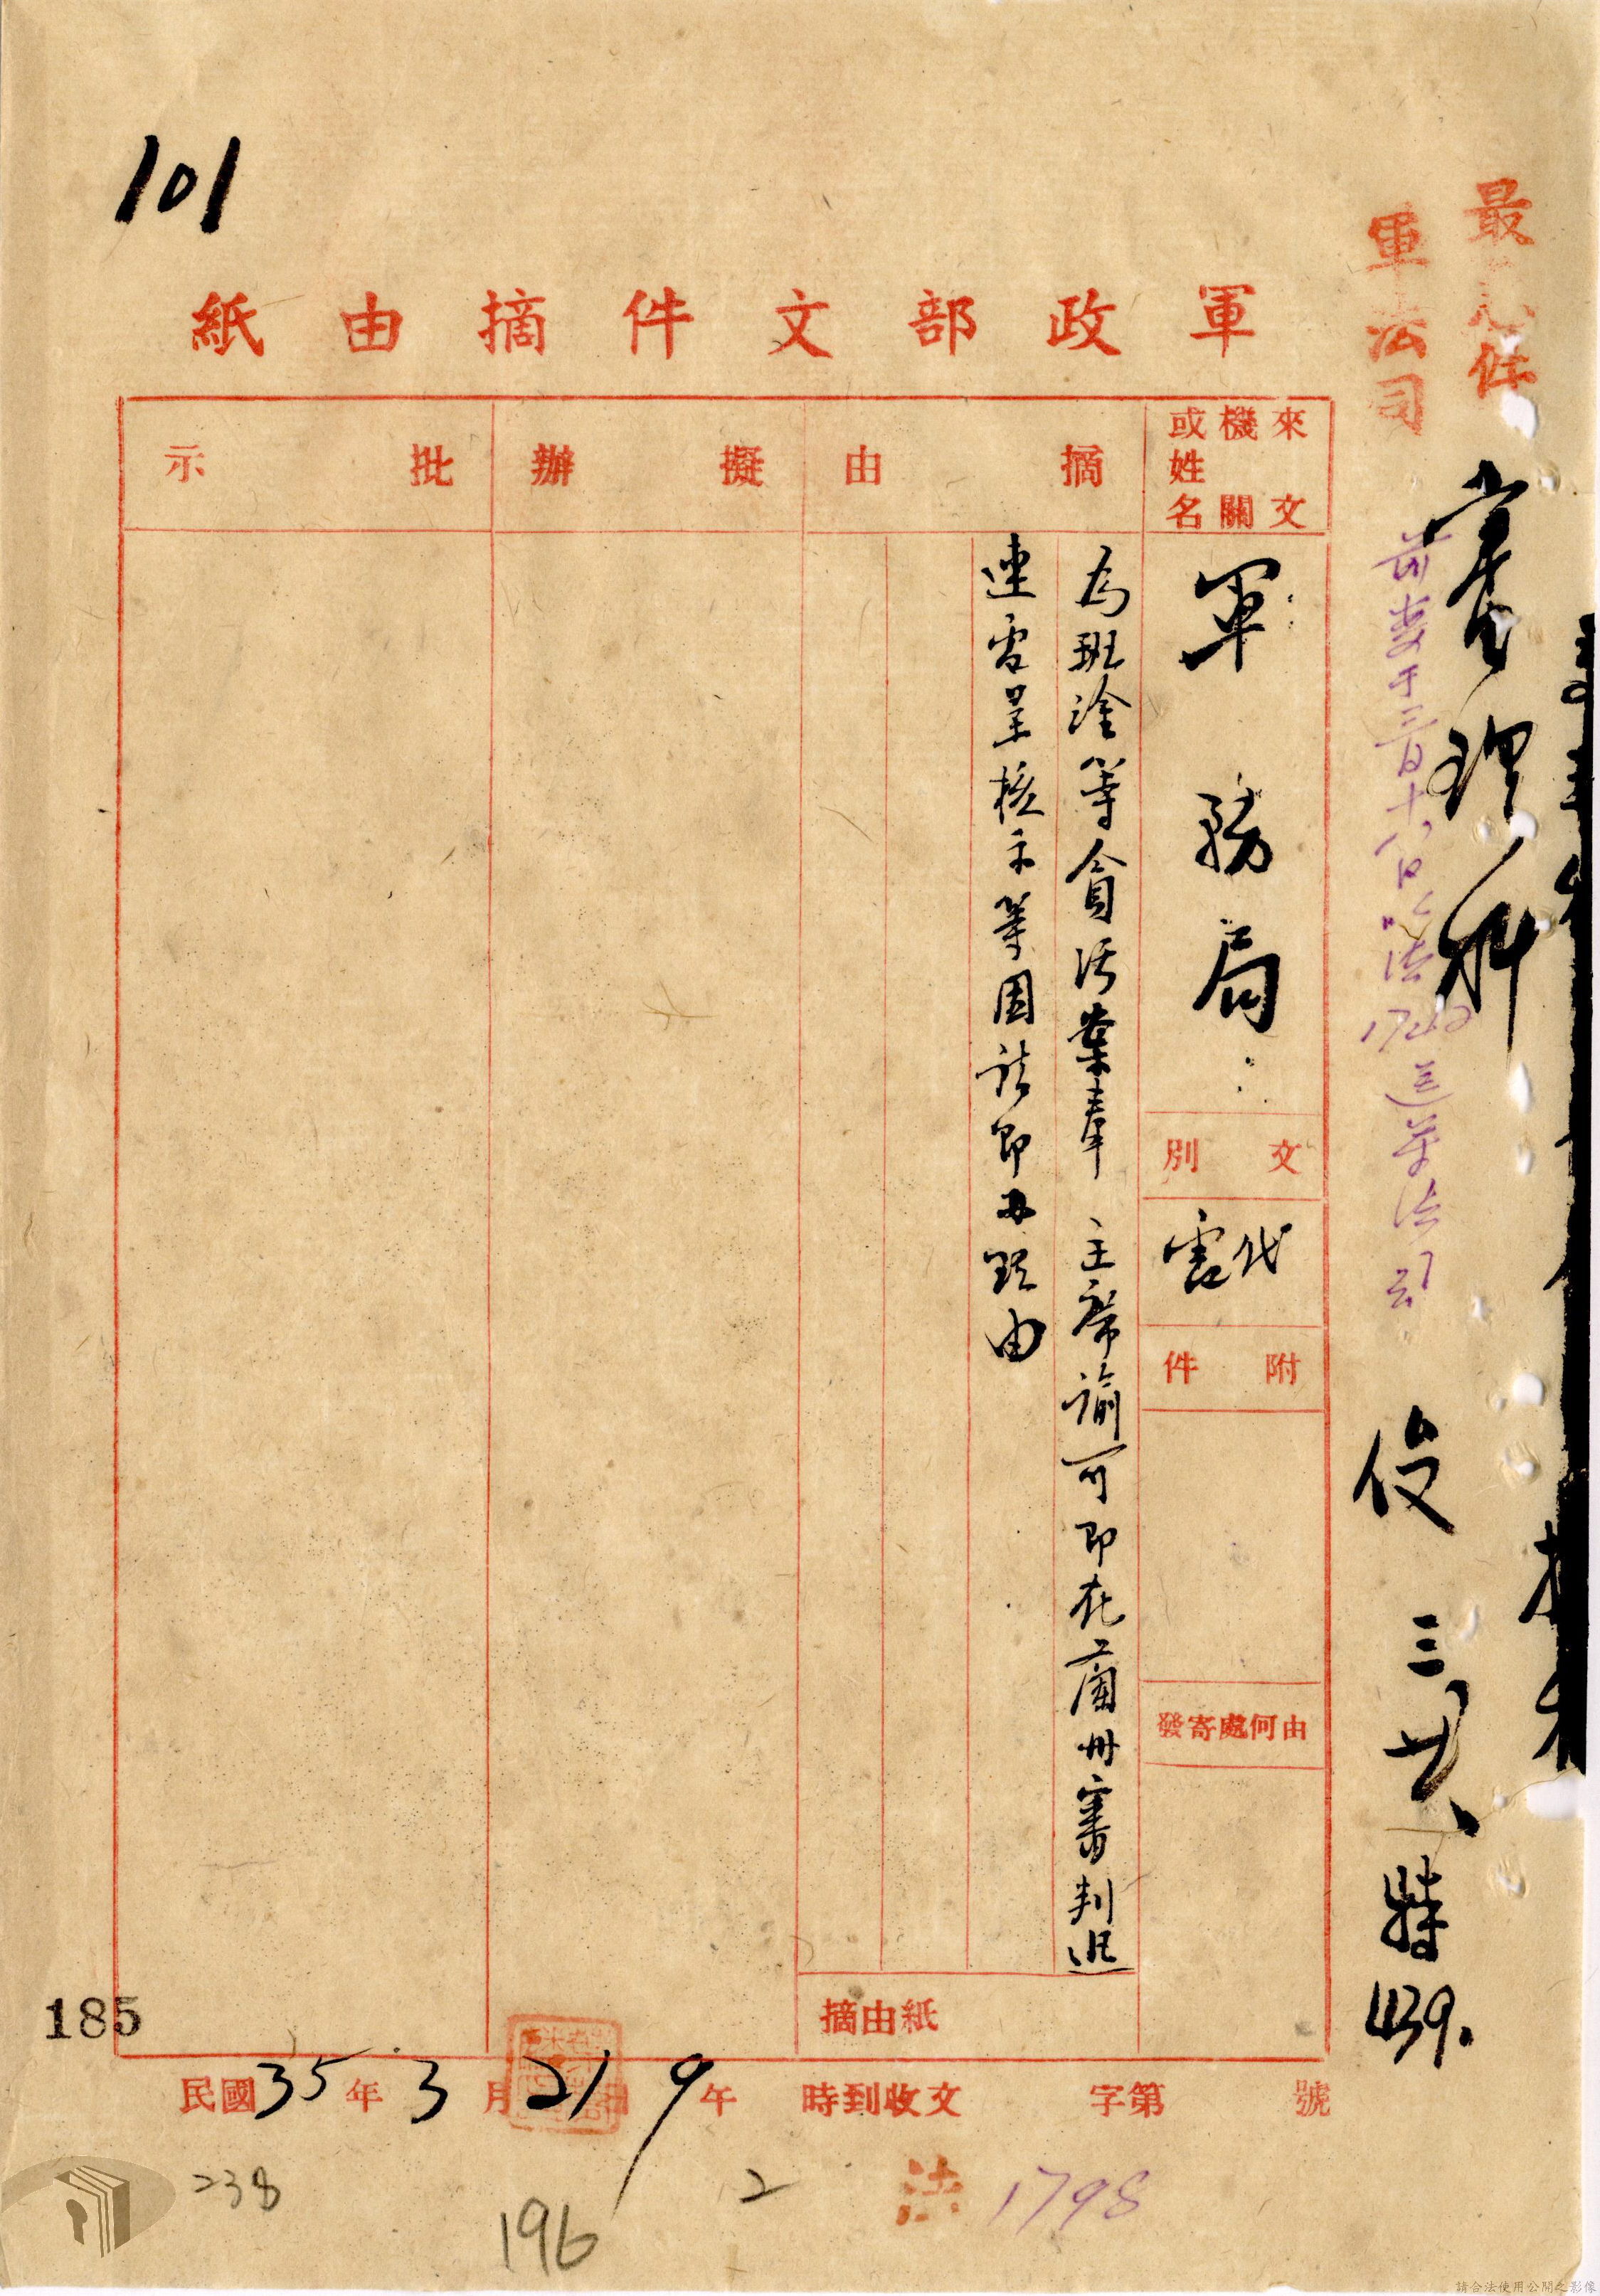 101
最急件
軍法司
軍政部文件摘由紙
來文機關或姓名
軍務局
文別
代電
附件
由何處寄發
摘由
為班淦等貪污案奉 主席諭可即在蘭州審判迅
速電呈核示等因請即办理由
擬辦
批示
審理科
三廿八
特
439.
摘由紙
185
民國35年3月21日9午 時到收文 字第 號
238
196
2
法 1798
請合法使用公開之影像